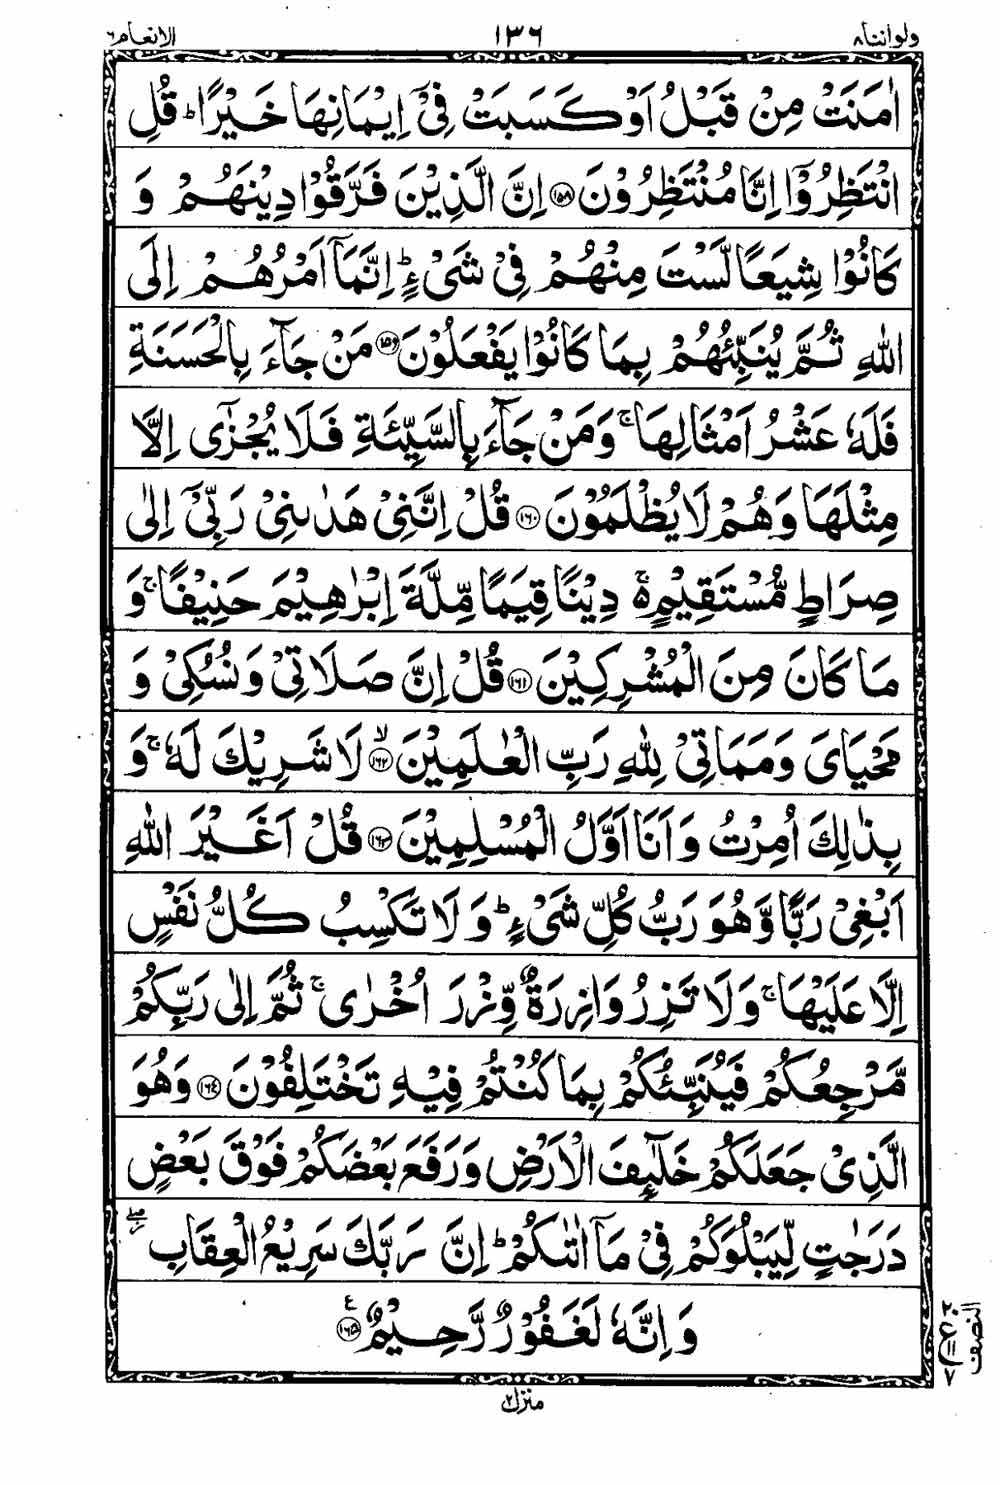 ولواننا ٨ ١٣٦ الانعام ٦
اٰمَنَتْ مِنْ قَبْلُ اَوْ كَسَبَتْ فِیْۤ اِیْمَانِهَا خَیْرًا ؕ قُلِ
انْتَظِرُوْۤا اِنَّا مُنْتَظِرُوْنَ ﴿۱۵۸﴾ اِنَّ الَّذِیْنَ فَرَّقُوْا دِیْنَهُمْ وَ
كَانُوْا شِیَعًا لَّسْتَ مِنْهُمْ فِیْ شَیْءٍ ؕ اِنَّمَاۤ اَمْرُهُمْ اِلَی
اللّٰهِ ثُمَّ یُنَبِّئُهُمْ بِمَا كَانُوْا یَفْعَلُوْنَ ﴿۱۵۹﴾ مَنْ جَآءَ بِالْحَسَنَةِ
فَلَهٗ عَشْرُ اَمْثَالِهَا ۚ وَمَنْ جَآءَ بِالسَّیِّئَةِ فَلَا یُجْزٰۤی اِلَّا
مِثْلَهَا وَهُمْ لَا یُظْلَمُوْنَ ﴿۱۶۰﴾ قُلْ اِنَّنِیْ هَدٰىنِیْ رَبِّیْۤ اِلٰی
صِرَاطٍ مُّسْتَقِیْمٍ ۚ۬ دِیْنًا قِیَمًا مِّلَّةَ اِبْرٰهِیْمَ حَنِیْفًا ۚ وَ
مَا كَانَ مِنَ الْمُشْرِكِیْنَ ﴿۱۶۱﴾ قُلْ اِنَّ صَلَاتِیْ وَنُسُكِیْ وَ
مَحْیَایَ وَمَمَاتِیْ لِلّٰهِ رَبِّ الْعٰلَمِیْنَ ﴿۱۶۲﴾ۙ لَا شَرِیْكَ لَهٗ ۚ وَ
بِذٰلِكَ اُمِرْتُ وَاَنَا اَوَّلُ الْمُسْلِمِیْنَ ﴿۱۶۳﴾ قُلْ اَغَیْرَ اللّٰهِ
اَبْغِیْ رَبًّا وَّهُوَ رَبُّ كُلِّ شَیْءٍ ؕ وَلَا تَكْسِبُ كُلُّ نَفْسٍ
اِلَّا عَلَیْهَا ۚ وَلَا تَزِرُ وَازِرَةٌ وِّزْرَ اُخْرٰی ۚ ثُمَّ اِلٰی رَبِّكُمْ
مَّرْجِعُكُمْ فَیُنَبِّئُكُمْ بِمَا كُنْتُمْ فِیْهِ تَخْتَلِفُوْنَ ﴿۱۶۴﴾ وَهُوَ
الَّذِیْ جَعَلَكُمْ خَلٰٓئِفَ الْاَرْضِ وَرَفَعَ بَعْضَكُمْ فَوْقَ بَعْضٍ
دَرَجٰتٍ لِّیَبْلُوَكُمْ فِیْ مَاۤ اٰتٰىكُمْ ؕ اِنَّ رَبَّكَ سَرِیْعُ الْعِقَابِ ۖؗ
وَاِنَّهٗ لَغَفُوْرٌ رَّحِیْمٌ ﴿۱۶۵﴾ ٤
النصف
٢٠
ع
١١
٧
منزل ٢